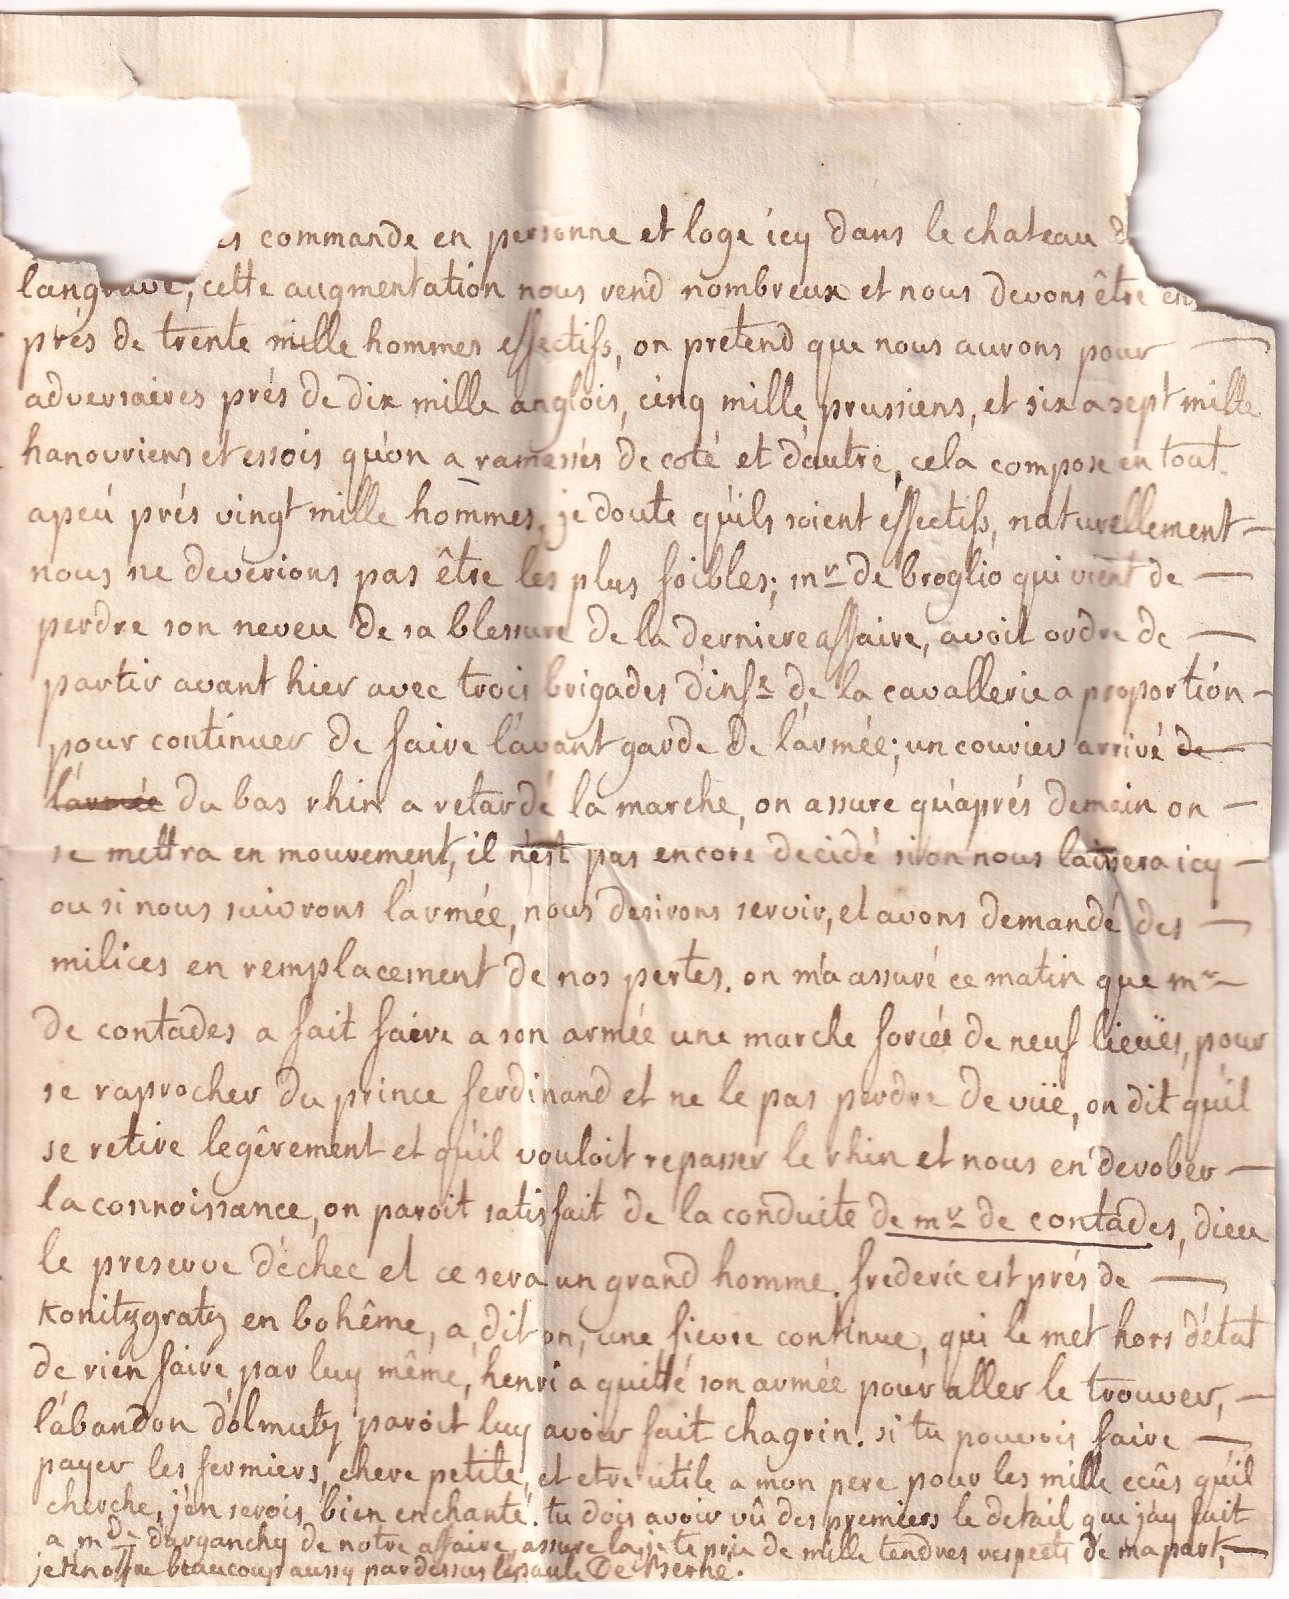 es commande en personne et loge icy dans le chateau d
langrave, cette augmentation nous rend nombreux et nous devons être en
prés de trente mille hommes effectifs, on pretend que nous aurons pour —
adversaires prés de dix mille anglois, cinq mille prussiens, et six a sept mille
hanovriens et essois qu'on a ramessés de coté et d'autre, cela compose en tout
apeú prés vingt mille hommes, je doute qu'ils soient éffectifs, naturellement —
nous ne deverions pas être les plus foibles; mr de broglio qui vient de —
perdre son neveu de sa blessure de la derniere affaire, avoit ordre de —
partir avant hier avec trois brigades d'infe de la cavallerie a proportion —
pour continuer de faire l'avant garde de l'armée; un courier arrivé de —
l'armée du bas rhin a retardé la marche, on assure qu'aprés demain on —
se mettra en mouvement, il n'est pas encore decidé si on nous laissera icy —
ou si nous suivrons l'armée, nous desirons servir, et avons demandé des —
milices en remplacement de nos pertes. on m'a assuré ce matin que mr —
de contades a fait faire a son armée une marche forcée de neuf lieuës, pour
se raprocher du prince ferdinand et ne le pas perdre de vüe, on dit qu'il
se retire legêrement et qu'il vouloit repasser le rhin et nous en derober —
la connoissance, on paroit satisfait de la conduite de mr de contades, dieu
le preserve d'échec et ce sera un grand homme. frederic est prés de —
Konitzgratz en bohême, a, dit on, une fievre continue, qui le met hors d'état
de rien faire par luy même, henri a quitté son armée pour aller le trouver, —
l'abandon d'olmutz paroit luy avoir fait chagrin. si tu pouvois faire —
payer les fermiers, chere petite, et etre utile a mon pere pour les mille ecûs qu'il
cherche, j'en serois bien enchanté. tu dois avoir vû des premiers le detail que j'ay fait
a mde d'arganchy de notre affaire, assure la je te prie de mille tendres respects de ma part, —
beaucoup aussy par dessus l'epaule De Berné.